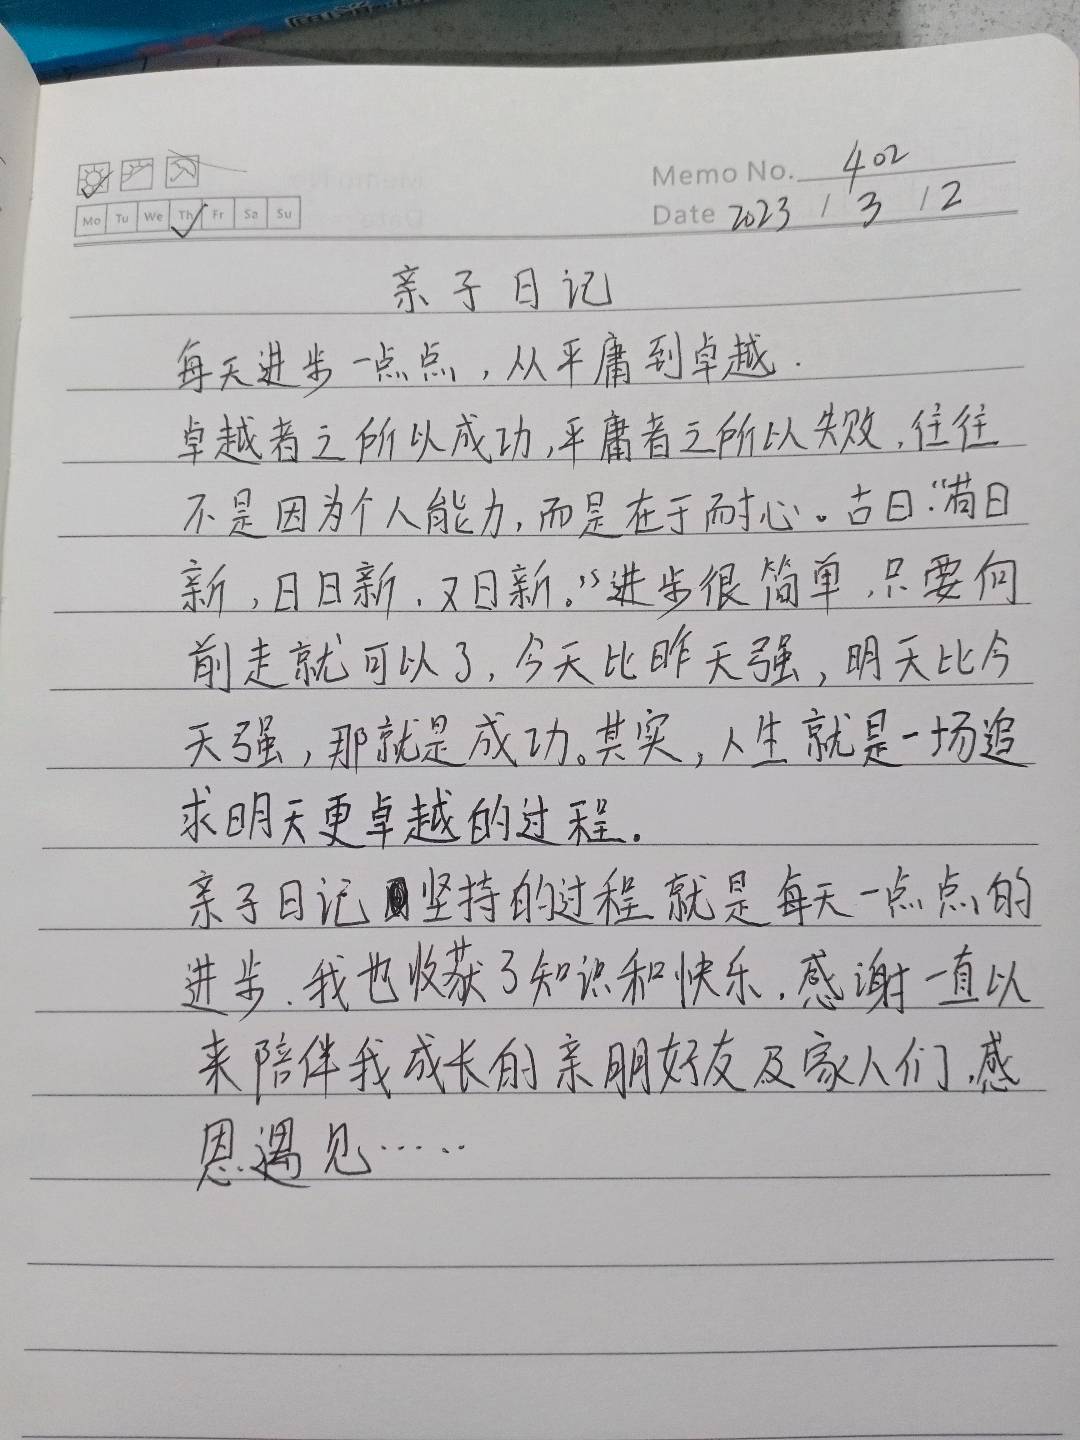 Memo No. 402
Mo Tu We Th Fr Sa Su
Date 2023 / 3 / 2
亲子日记
每天进步一点点，从平庸到卓越.
卓越者之所以成功,平庸者之所以失败,往往
不是因为个人能力,而是在于耐心。古曰:“苟日
新,日日新,又日新。”进步很简单,只要向
前走就可以了,今天比昨天强,明天比今
天强,那就是成功。其实,人生就是一场追
求明天更卓越的过程。
亲子日记坚持的过程就是每天一点点的
进步,我也收获了知识和快乐,感谢一直以
来陪伴我成长的亲朋好友及家人们,感
恩遇见……